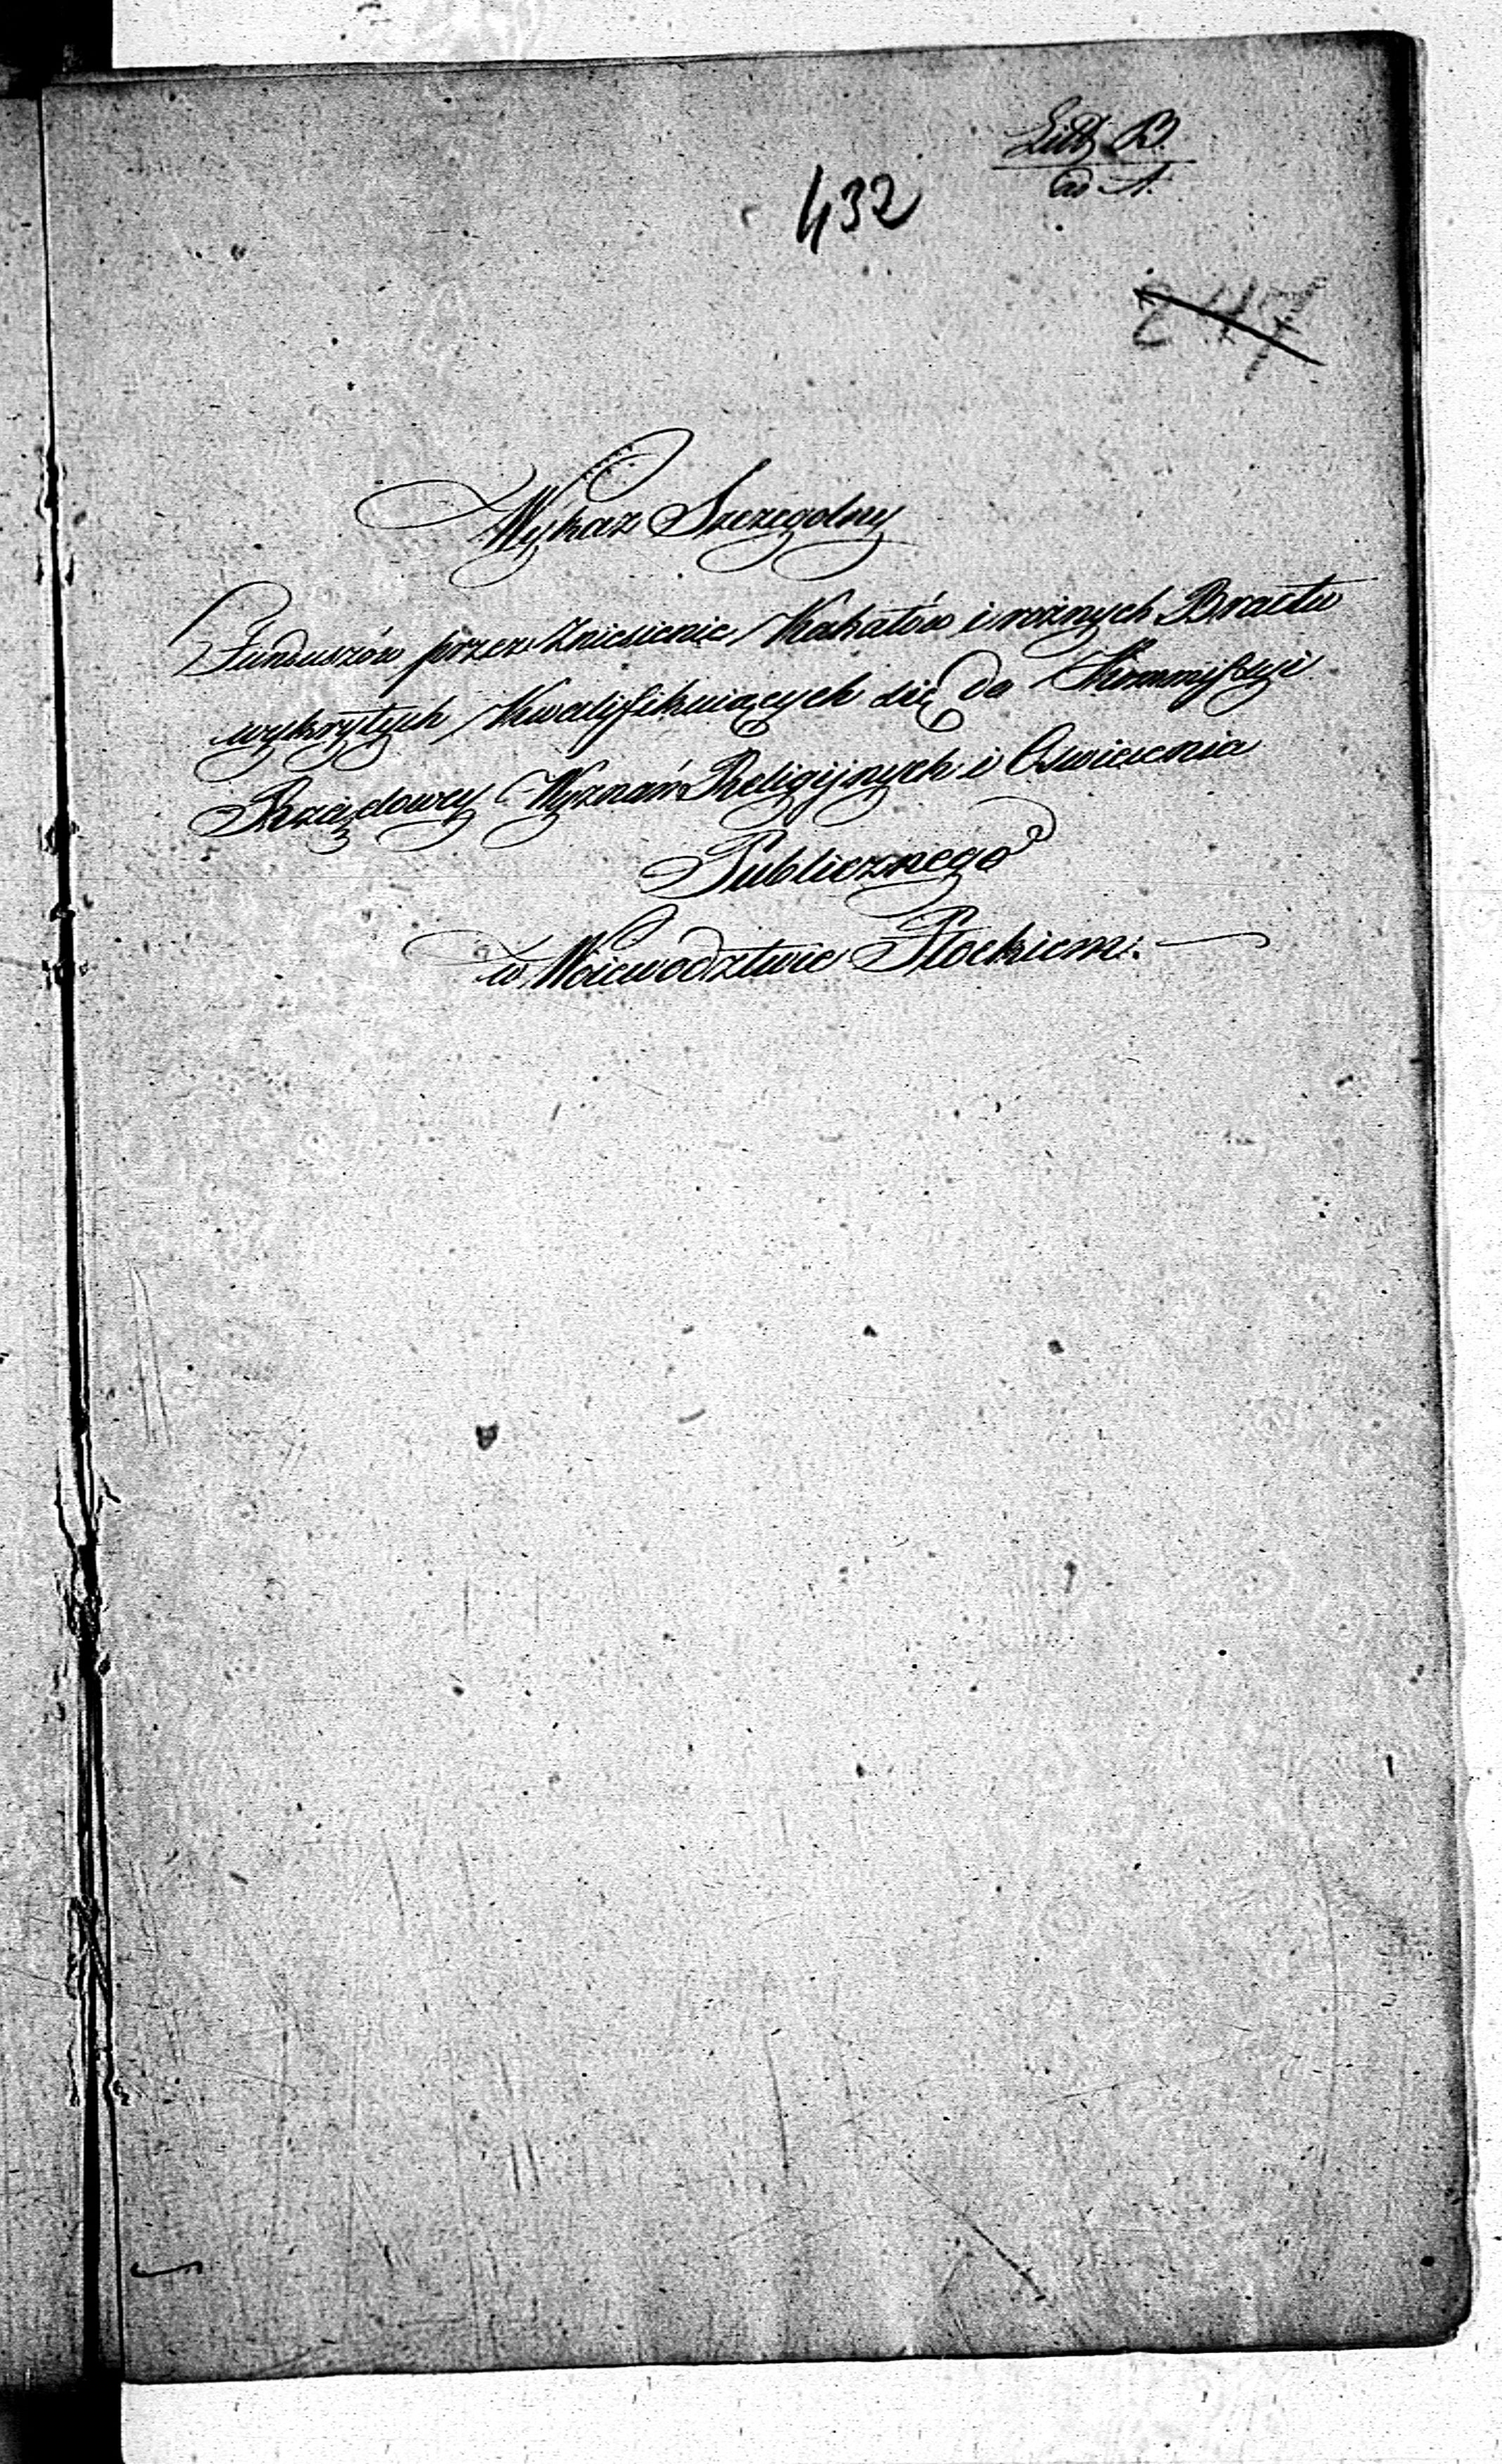 Litt B.
ad A.
432
247
Wykaz Szczegolny
Funduszów przez Zniesienie Kahałów i rożnych Bractw
wykrytych Kwalifikuiących się do Kommissyi
Rządowey Wyznań Religijnych i Oswiecenia
Publicznego
w Woiewodztwie Płockiem.